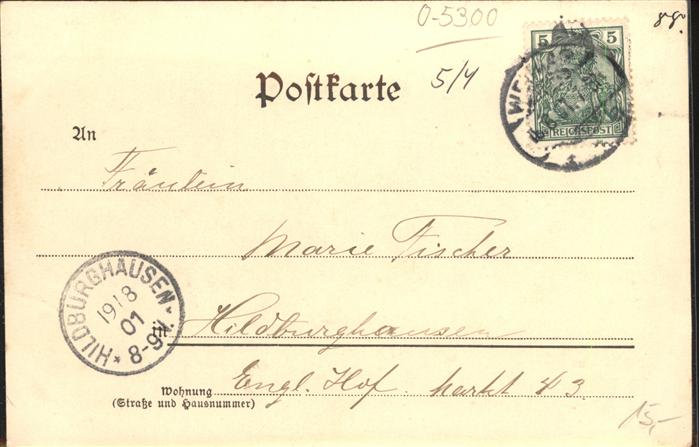 0-5300
88.
5 5
5/4
REICHSPOST
Postkarte
An
Fräulein
Marie Fischer
HILDBURGHAUSEN
19/8
01
8-9V.
in Hildburghausen
Engl. Hof. Markt 43.
Wohnung
(Straße und Hausnummer)
15,-